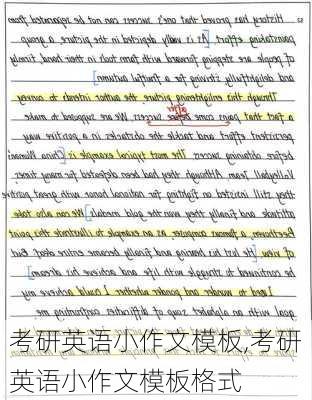 History has proved that one's success can not be separated from
painstaking effort. [As is vividly depicted in the picture, a group
of people are stepping forward with farm tool in their hand, timely
and delightfully striving for a fruitful autumn.
Through this enlightening picture, the author intends to convey
after
a fact that pains come before success. We are supposed to make
persistent effort and tackle the obstacles in a positive way
before obtaining success. The most typical example is China Women's
Volleyball Team. Although they had been defeated for many times,
they still insisted on fighting for national honor with great positive
attitude and finally they won the gold medals. We can also take
Beethoven, a famous composer, as an example to illustrate this point
of view. He lost his hearing and finally became entire deaf. But
he continued to struggle with life and achieve his dream.
I used to wonder and ponder whether I could achieve my
goal with an alphabet soup of difficulties confronting me
考研英语小作文模板,考研
英语小作文模板格式